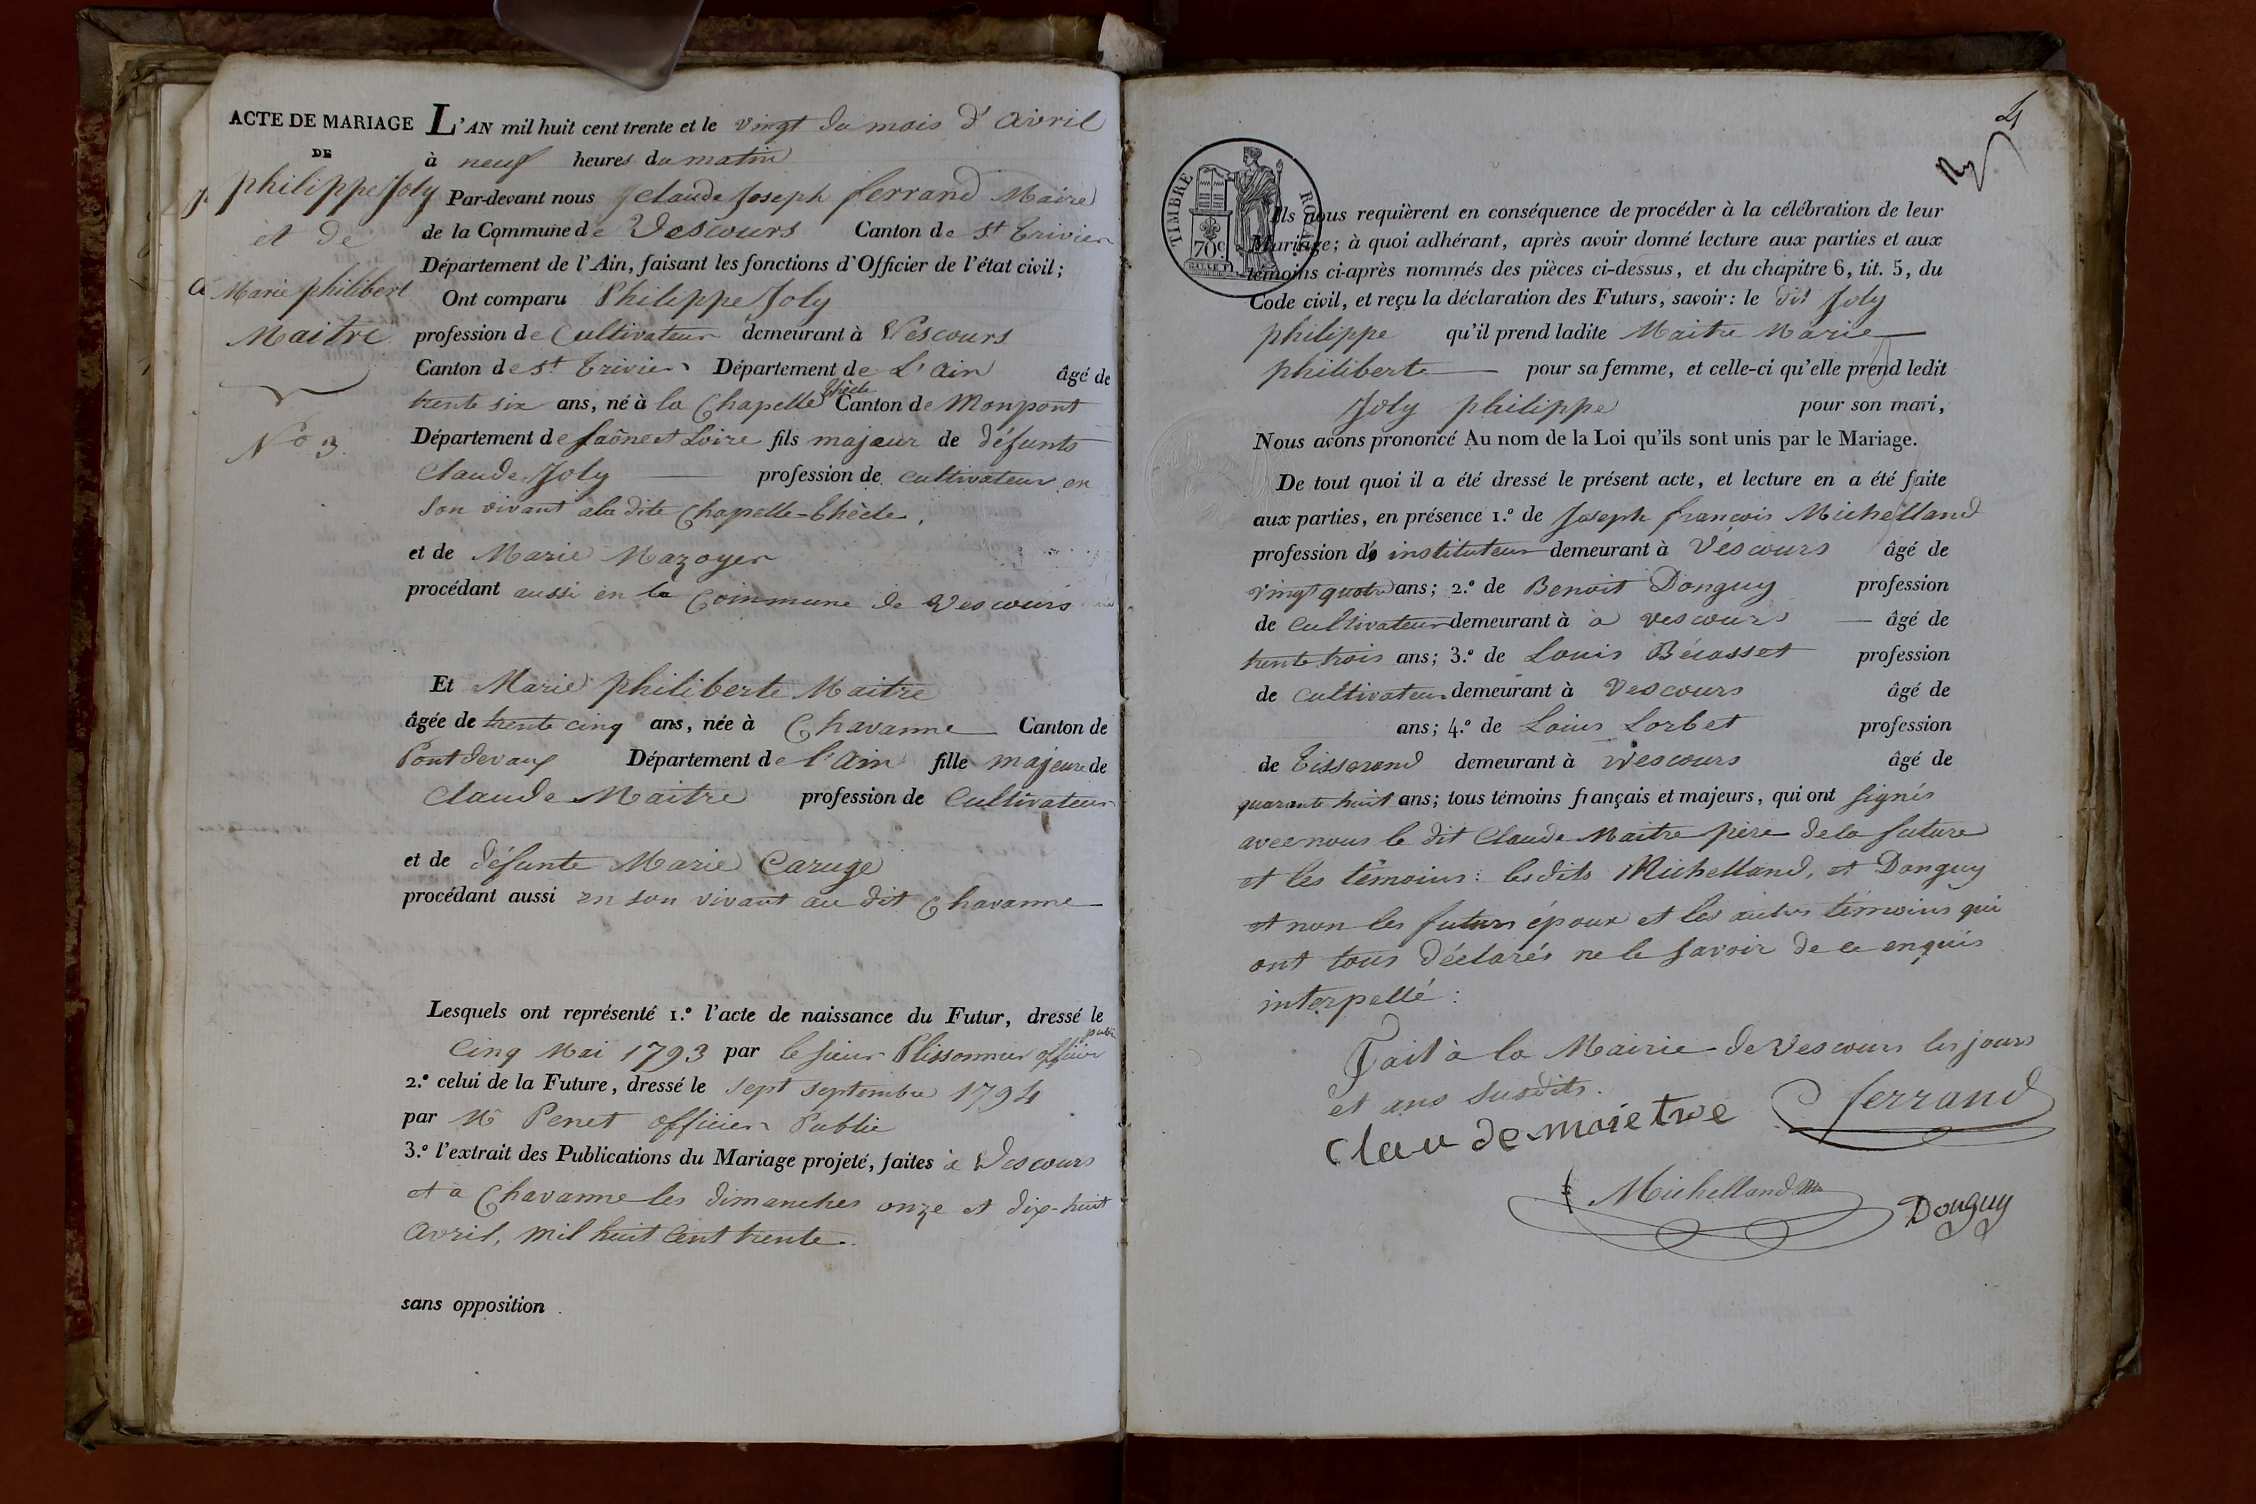 ACTE DE MARIAGE
DE
philippe Joly
et de
Marie philibert
Maitre
N.o 3.
L'AN mil huit cent trente et le vingt du mois d'avril
à neuf heures du matin
Par-devant nous Claude Joseph ferrand Maire
de la Commune de Vescours Canton de St Trivier
Département de l'Ain, faisant les fonctions d'Officier de l'état civil;
Ont comparu Philippe Joly
profession de Cultivateur demeurant à Vescours
Canton de St Trivier Département de L'ain âgé de
trente six ans, né à la Chapelle thècle Canton de Monpont
Département de Saône et Loire fils majeur de défunts
Claude Joly profession de cultivateur en
son vivant a la dite Chapelle-thècle,
et de Marie Mazoyer
procédant aussi en la Commune de Vescours
Et Marie philiberte Maitre
âgée de trente cinq ans, née à Chavanne Canton de
Pontdevaux Département de l'Ain fille majeure de
Claude Maitre profession de Cultivateur
et de défunte Marie Caruge
procédant aussi en son vivant au dit Chavanne
Lesquels ont représenté 1.º l'acte de naissance du Futur, dressé le
Cinq Mai 1793 par le sieur Plissonnier officier public
2.º celui de la Future, dressé le sept septembre 1794
par Mr Penet officier Public
3.º l'extrait des Publications du Mariage projeté, faites à Vescours
et à Chavanne les dimanches onze et dix-huit
avril, mil huit cent trente.
sans opposition.
4
TIMBRE ROYAL
70c
Ils nous requièrent en conséquence de procéder à la célébration de leur
Mariage; à quoi adhérant, après avoir donné lecture aux parties et aux
témoins ci-après nommés des pièces ci-dessus, et du chapitre 6, tit. 5, du
Code civil, et reçu la déclaration des Futurs, savoir: le dit Joly
philippe qu'il prend ladite Maitre Marie
philiberte pour sa femme, et celle-ci qu'elle prend ledit
Joly philippe pour son mari,
Nous avons prononcé Au nom de la Loi qu'ils sont unis par le Mariage.
De tout quoi il a été dressé le présent acte, et lecture en a été faite
aux parties, en présence 1.º de Joseph françois Michelland
profession d' instituteur demeurant à Vescours âgé de
vingt quatre ans; 2.º de Benoit Donguy profession
de Cultivateur demeurant à à vescours âgé de
trente trois ans; 3.º de Louis Bécasset profession
de Cultivateur demeurant à Vescours âgé de
ans; 4.º de Louis Lorbet profession
de Tisserand demeurant à Vescours âgé de
quarante huit ans; tous témoins français et majeurs, qui ont signés
avec nous le dit Claude Maitre père de la future
et les témoins: lesdits Michelland, et Donguy
et non les futurs époux et les autres témoins qui
ont tous déclarés ne le savoir de ce enquis
interpellé:
Fait à la Mairie de Vescours les jours
et ans susdits.
Clau de maietre ferrand
Michelland
Donguy